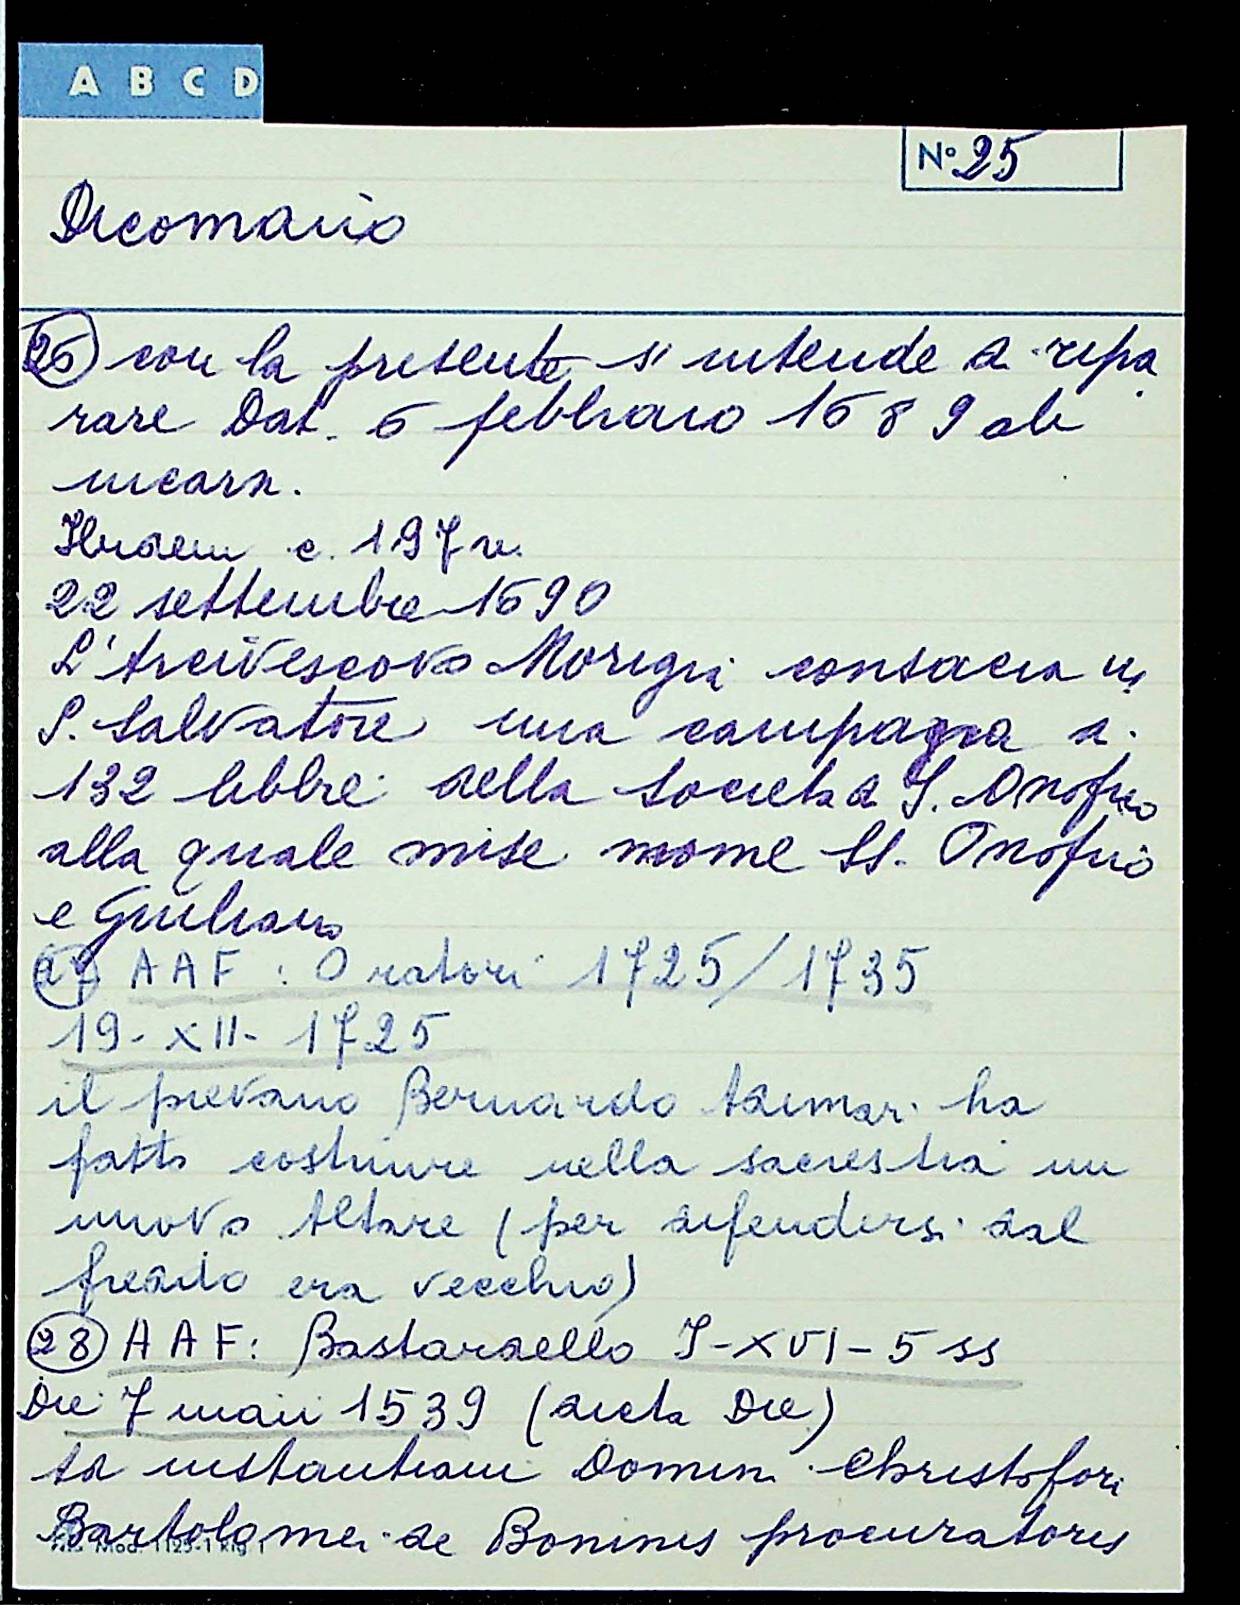 A B C D
N° 25
Dicomano
26 con la presente s'intende a ripa
rare Dat. 6 febbraio 1689 ab
incarn.
Ibidem c. 197 v.
22 settembre 1690
L'Arcivescovo Morigia consacra in
S. Salvatore una campagna a
132 libbre della Società S. Onofrio
alla quale mise nome SS. Onofrio
e Giuliano
27 AAF: Oratori 1725/1735
19-XII-1725
il pievano Bernardo Adimari ha
fatto costruire nella sacrestia un
nuovo Altare (per difendersi dal
freddo era vecchio)
28 AAF: Bastardello I-XVI-5 ss
Die 7 maii 1539 (dicta Die)
ad instantiam Domin. Christofori
Bartolomei de Boninis procuratoris
Mod. 1125-1 Rig 1